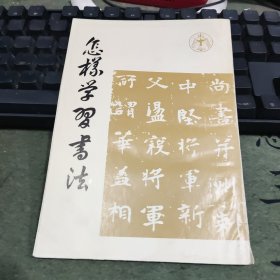 怎樣学習書法
尚書并
中堅將軍新
父盪寇將軍
謂華益相